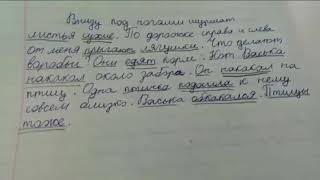 Внизу под ногами шуршат
листья сухие. По дорожке справа и слева
от меня прыгают лягушки. Что делают
воробьи? Они едят корм. Кот Васька
накакал около забора. Он накакал на
птицу. Одна птичка подошла к нему
совсем близко. Васька обкакался. Птицы
тоже.